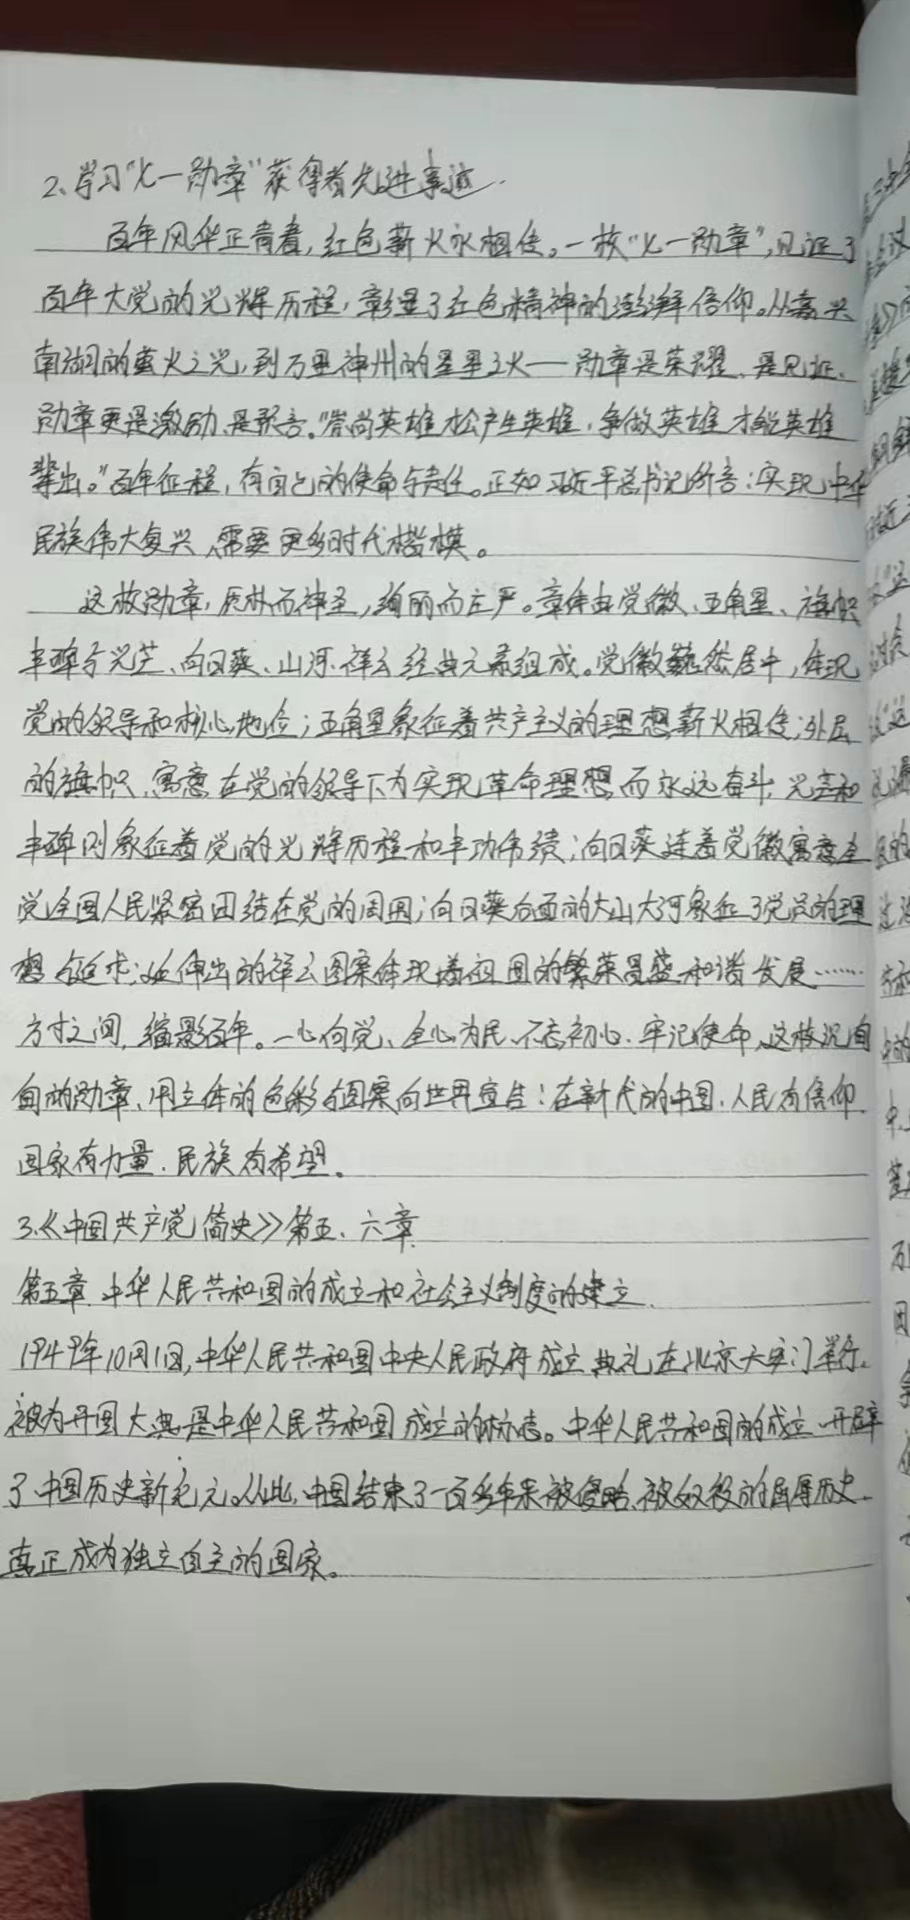 2、学习“七一勋章”获得者先进事迹.
百年风华正青春，红色薪火永相传。一枚“七一勋章”，见证了
百年大党的光辉历程，彰显了红色精神的澎湃信仰。从嘉兴
南湖的萤火之光，到万里神州的星星之火——勋章是荣耀、是见证、
勋章更是激励、是预言。“崇尚英雄才会产生英雄，争做英雄才能英雄
辈出。”百年征程，有自己的使命与责任。正如习近平总书记所言：实现中华
民族伟大复兴、需要更多时代楷模。
这枚勋章，质朴而神圣，绚丽而庄严。章体由党徽、五角星、旗帜
丰碑与光芒、向日葵、山河、祥云经典元素组成。党徽巍然居中，体现
党的领导和核心地位；五角星象征着共产主义的理想薪火相传；外层
的旗帜、寓意在党的领导下为实现革命理想而永远奋斗；光芒和
丰碑则象征着党的光辉历程和丰功伟绩；向日葵连着党徽寓意全
党全国人民紧密团结在党的周围；向日葵后面的大山大河象征了党员的理
想与追求；延伸出的祥云图案体现着祖国的繁荣昌盛和谐发展……
方寸之间，缩影百年。一心向党、全心为民、不忘初心、牢记使命、这枚沉甸
甸的勋章、用立体的色彩与图案向世界宣告：在新时代的中国，人民有信仰、
国家有力量、民族有希望。
3.《中国共产党简史》第五、六章
第五章、中华人民共和国的成立和社会主义制度的建立.
1949年10月1日，中华人民共和国中央人民政府成立典礼在北京天安门举行、
被为开国大典是中华人民共和国成立的标志。中华人民共和国的成立、开辟
了中国历史新纪元。从此，中国结束了一百多年来被侵略、被奴役的屈辱历史、
真正成为独立自主的国家。